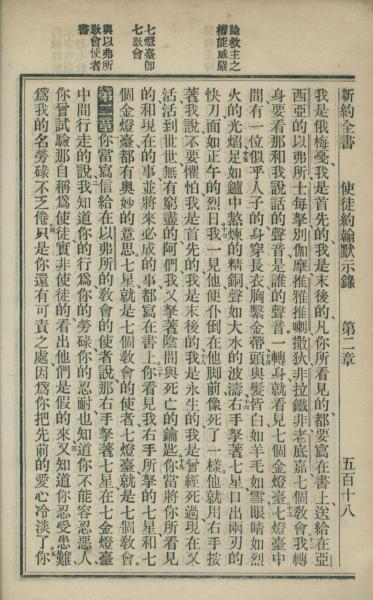 新約全書 使徒約翰默示錄 第二章 五百十八
論救主之權能威嚴
七燈臺卽七敎會
與以弗所敎會使者書
我是俄梅戛、我是首先的、我是末後的、凡你所看見的都要寫在書上、送給在亞
西亞的以弗所士每拏別伽摩推雅推喇撒狄非拉鐵非老底嘉七個敎會、我轉
身要看那和我說話的聲音是誰的聲音、一轉身就看見七個金燈臺、七燈臺中
間有一位似乎人子的、身穿長衣、胸繫金帶、頭與髮皆白、如羊毛如雪、眼睛如烈
火的光焰、足如鑪中熬煉的精銅、聲如大水的波濤、右手拏著七星、口出兩刃的
快刀、面如正午的烈日、我一見他、便仆倒在他脚前、像死了一樣、他就用右手按
著我說、不要懼怕、我是首先的、我是末後的、我是永生的、我是曾經死過現在又
活、活到世世無有窮盡的、阿們、我又拏著陰間與死亡的鑰匙、你當將你所看見
的、和現在的事、並將來必成的事、都寫在書上、你看見我右手所拏的七星、和七
個金燈臺都有奧妙的意思、七星就是七個敎會的使者、七燈臺就是七個敎會、
第二章 你當寫信給在以弗所的敎會的使者說、那右手拏著七星在七金燈臺
中間行走的說、我知道你的行爲、你的勞碌、你的忍耐、也知道你不能容忍惡人、
你曾試驗那自稱爲使徒實非使徒的、看出他們是假的來、又知道你忍受患難、
爲我的名勞碌不乏倦、只是你還有可責之處、因爲你把先前的愛心冷淡了、你